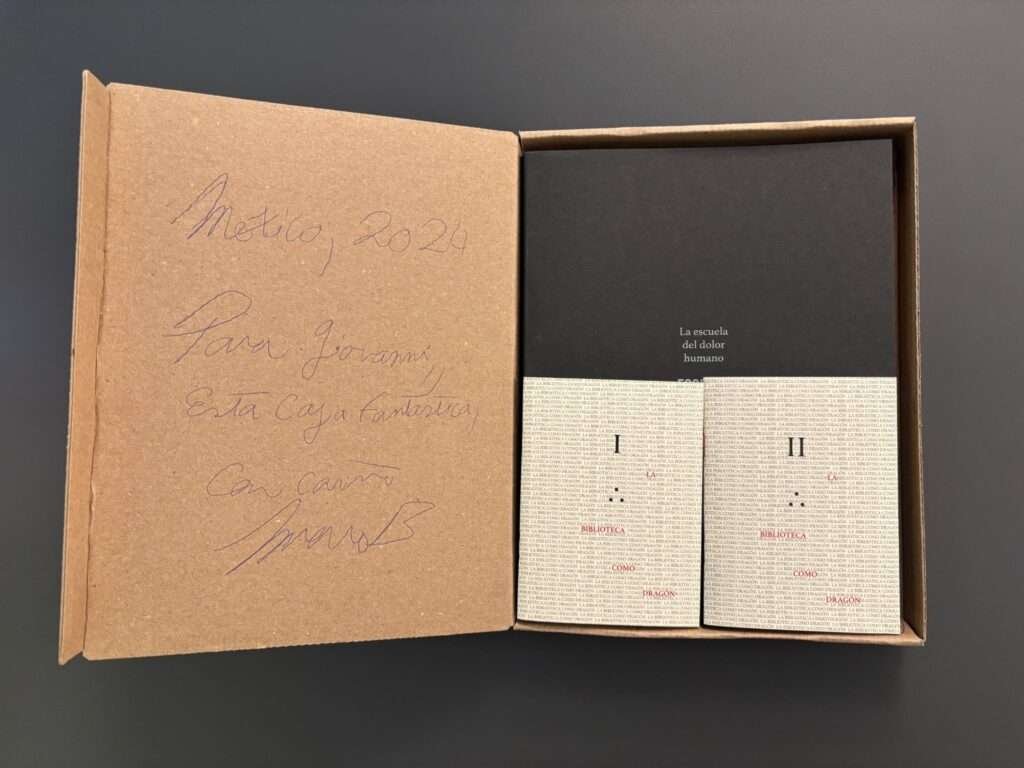 México, 2024
Para Giovanni,
Esta caja fantástica,
con cariño
La escuela
del dolor
humano
I
LA
BIBLIOTECA
COMO
DRAGÓN
II
LA
BIBLIOTECA
COMO
DRAGÓN